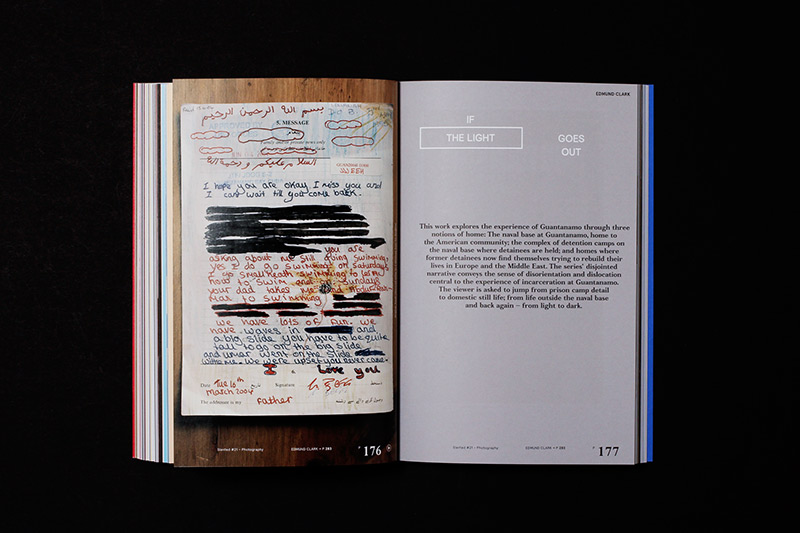 بسم الله الرحمن الرحيم
5. MESSAGE
Family and or private news only
I hope you are okay I miss you and
I cant wait till you come back.
you are
asking about me still doing swimming,
yes I do go swimming on Saturdays
I go Smallheath swimming to learn
how to swim and Sundays
your dad takes me and
to swimming
we have lots of fun. we
have waves in and
a big slide you have to be quite
tall to go on the big slide
and umar went on the slide
with me. we were upset you never came.
I Love you
Date Tue 16th
March 2004
Signature
The addressee is my father
Slanted #21 – Photography
EDMUND CLARK → P 283
P 176
EDMUND CLARK
IF
THE LIGHT
GOES
OUT
This work explores the experience of Guantanamo through three
notions of home: The naval base at Guantanamo, home to
the American community; the complex of detention camps on
the naval base where detainees are held; and homes where
former detainees now find themselves trying to rebuild their
lives in Europe and the Middle East. The series' disjointed
narrative conveys the sense of disorientation and dislocation
central to the experience of incarceration at Guantanamo.
The viewer is asked to jump from prison camp detail
to domestic still life; from life outside the naval base
and back again – from light to dark.
Slanted #21 – Photography
EDMUND CLARK → P 283
P 177